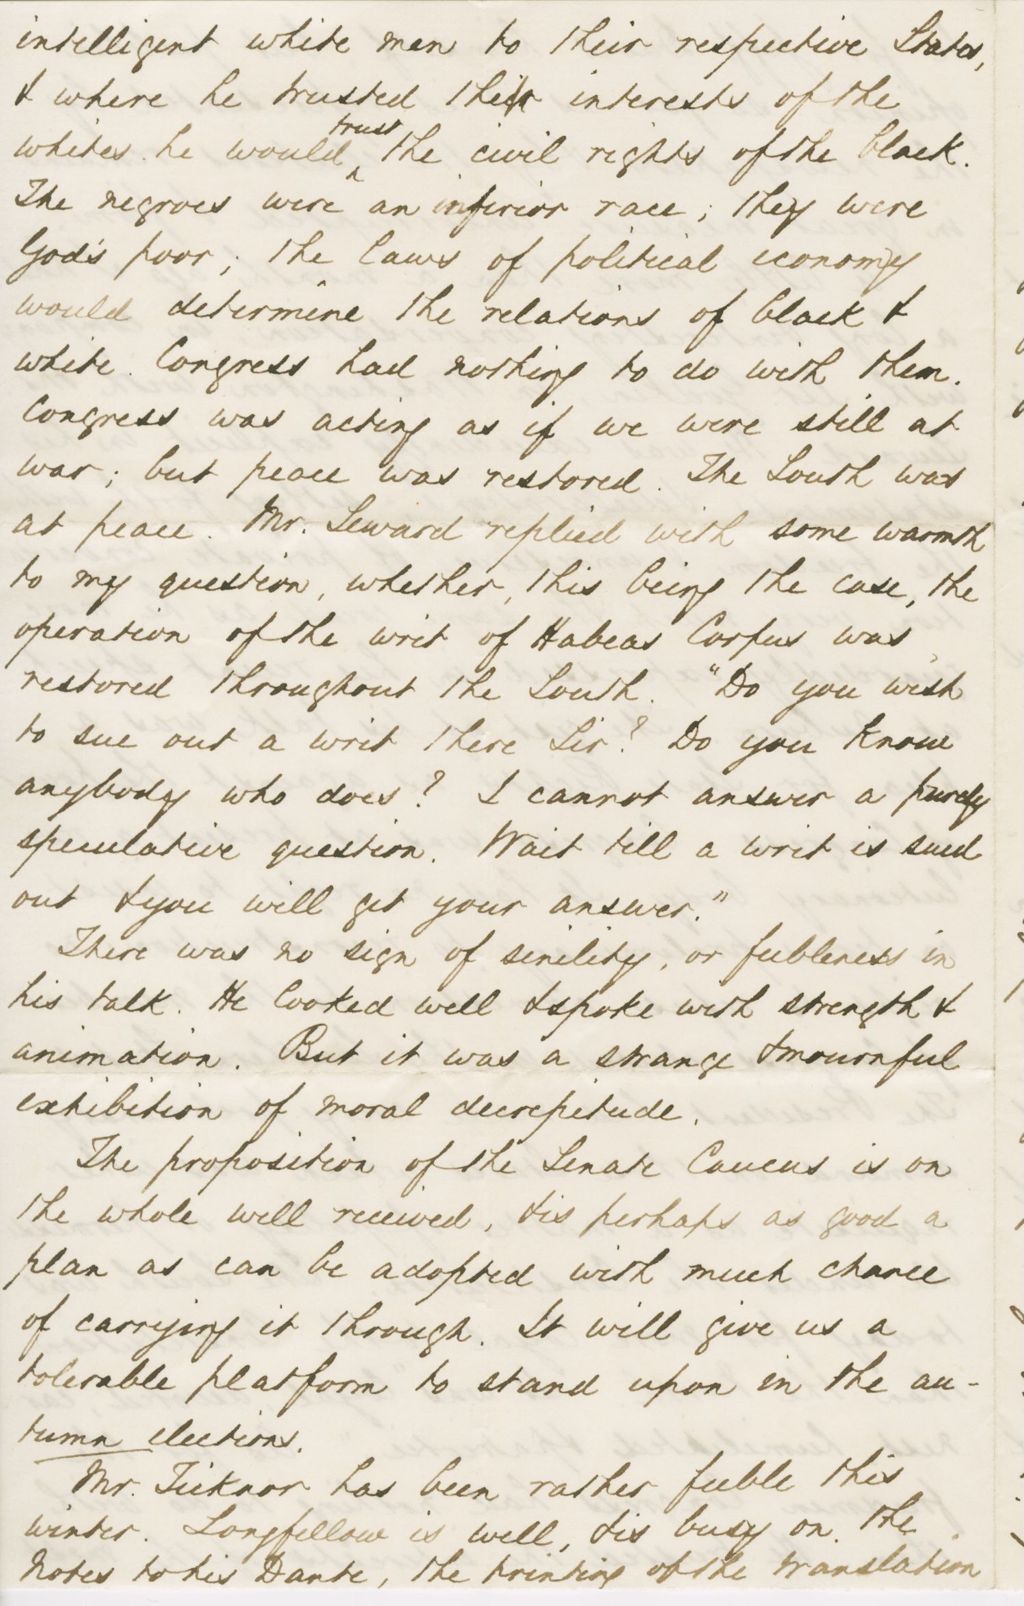 intelligent white men to their respective States,
& where he trusted the interests of the
trust
whites he would ^ the civil rights of the black.
The negroes were an inferior race; they were
God's poor; the laws of political economy
would determine the relations of black &
white. Congress had nothing to do with them.
Congress was acting as if we were still at
war; but peace was restored. The South was
at peace. Mr. Seward replied with some warmth
to my question, whether, this being the case, the
operation of the writ of Habeas Corpus was
restored throughout the South. "Do you wish
to sue out a writ there Sir? Do you know
anybody who does? I cannot answer a purely
speculative question. Wait till a writ is sued
out & you will get your answer."
There was no sign of senility, or feebleness in
his talk. He looked well & spoke with strength &
animation. But it was a strange & mournful
exhibition of moral decrepitude.
The proposition of the Senate Caucus is on
the whole well received, & is perhaps as good a
plan as can be adopted with much chance
of carrying it through. It will give us a
tolerable platform to stand upon in the au-
tumn elections.
Mr. Ticknor has been rather feeble this
winter. Longfellow is well, & is busy on the
notes to his Dante, the printing of the translation